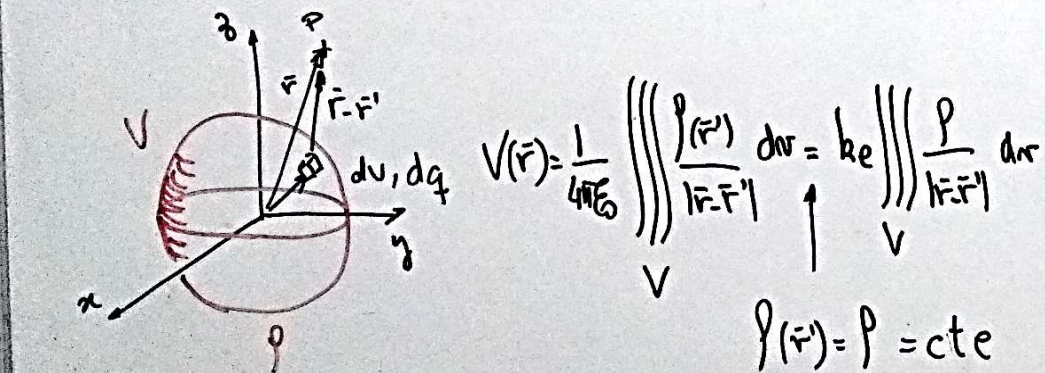 z
P
r̄
r̄-r̄'
V
dv, dq
y
x
ρ
V(r̄)= 1/4πε₀ ∭_V ρ(r̄')/|r̄-r̄'| dv = ke ∭_V ρ/|r̄-r̄'| dv
ρ(r̄')= ρ = cte